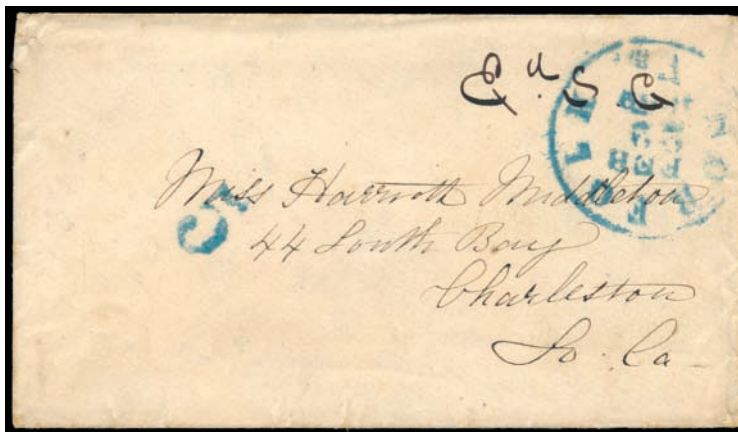 Ed. S. G
Miss Harriott Middleton
44 South Bay
Charleston
So. Ca
5